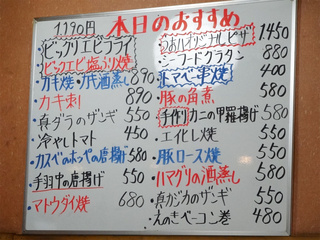 本日のおすすめ
1190円
・ビックリエビフライ
・ビックエビ塩ふり焼
・カキ焼・カキ酒蒸し 890
・カキ刺 890
・真ダラのザンギ 550
・冷やしトマト 450
・カスベのホッペの唐揚げ 580
・手羽中の唐揚げ 550
・マトウダイ焼 680
オリジナルピザ 1450
・シーフードグラタン 880
・トマベー串焼 400
・豚の角煮 580
・手作りカニの甲羅揚げ 580
・エイヒレ焼 550
・豚ロース焼 550
・ハマグリの酒蒸し 580
・真ガジカのザンギ 550
・えのきベーコン巻 480